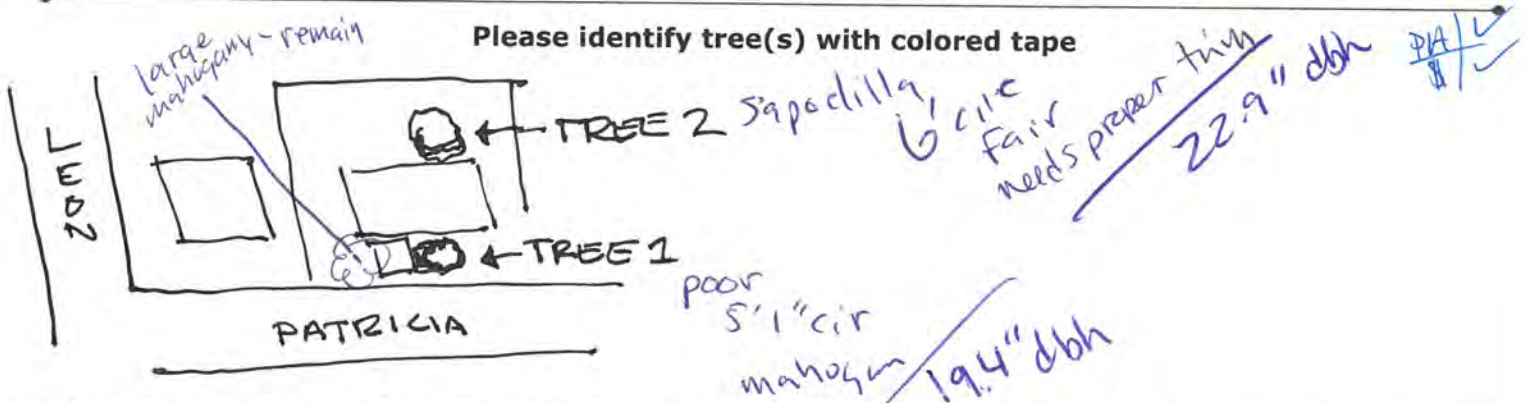 Please identify tree(s) with colored tape
large
mahogany - remain
LEON
TREE 2
Sapodilla,
6' cir
fair
needs proper trim
22.9" dbh
TREE 1
poor
5'1" cir
19.4" dbh
PATRICIA